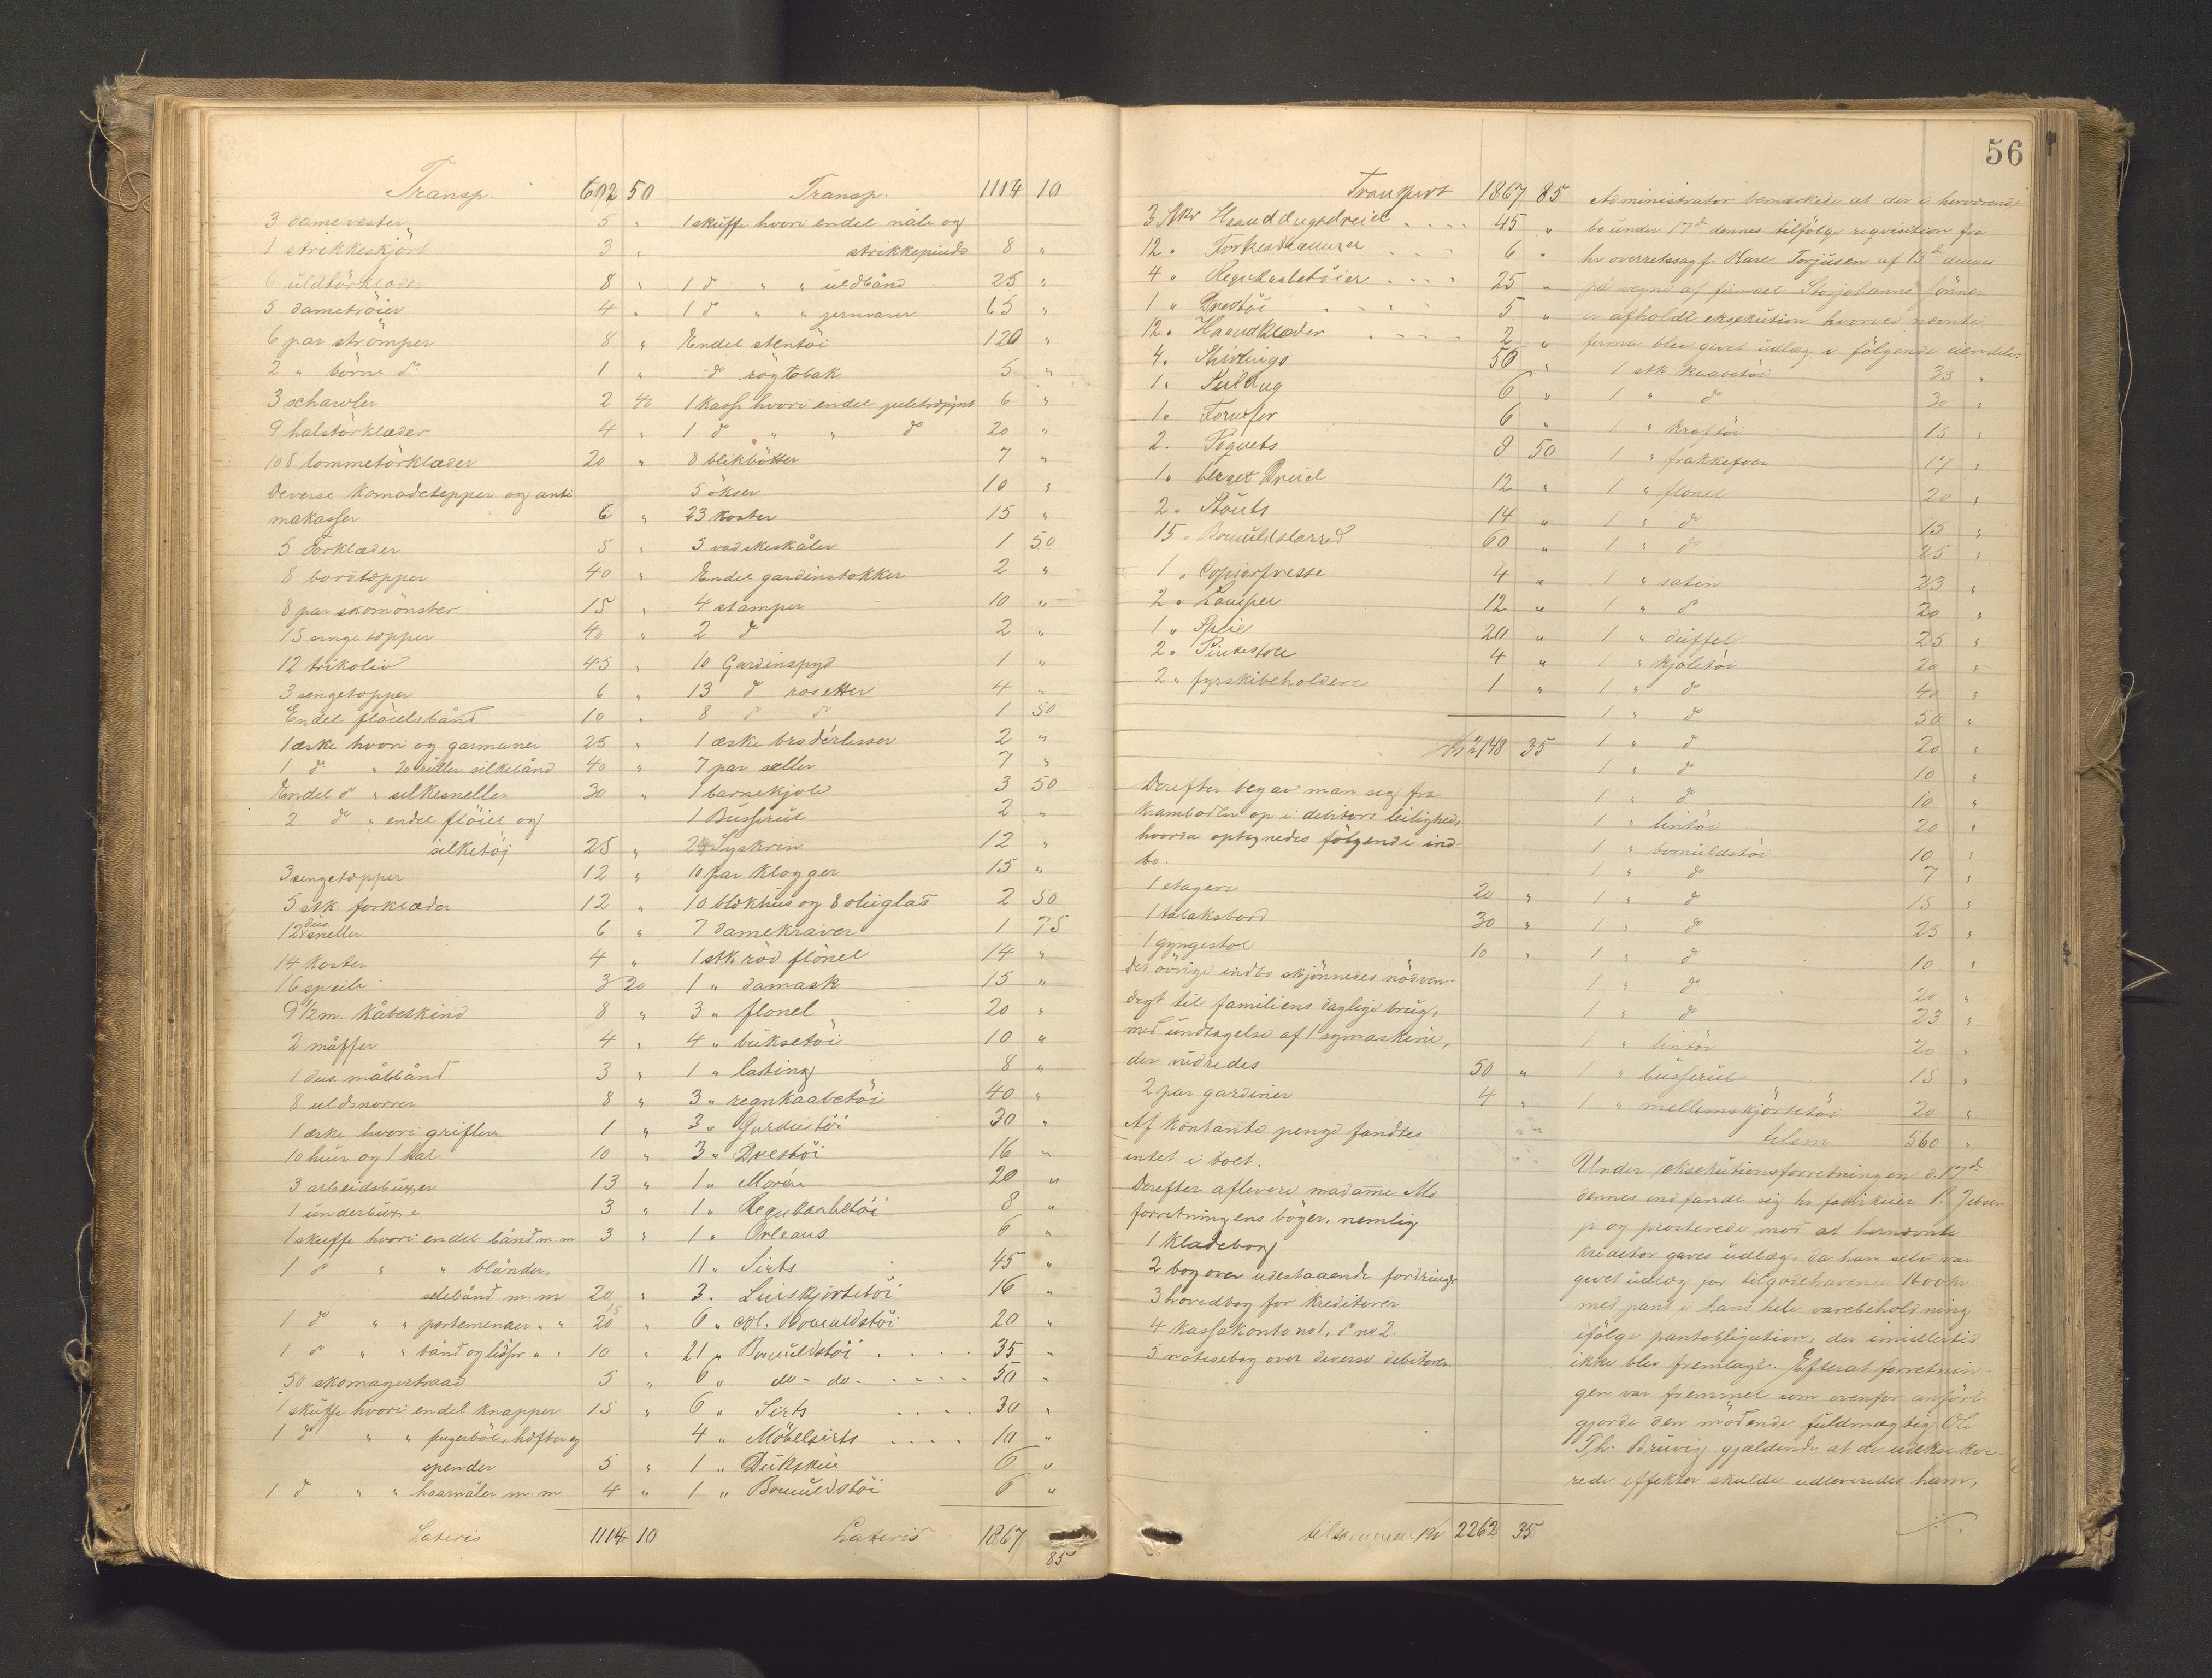 Transp. 692 50
3 damevester 5 "
1 strikkeskjört 3 "
6 uldtörklæder 8 "
5 dametröier 4 "
6 par strömper 8 "
2 " börne do 1 "
3 schawler 2 40
9 halstörklæder 4 "
108 lommetörklæder 20 "
Deverse komodetepper og anti
makasser 6 "
5 Forklæder 5 "
8 bordtæpper 40 "
8 par skomönster 15 "
15 sengetæpper 40 "
12 trikoliv 45 "
3 sengetæpper 6 "
Endel flöielsbånd 10 "
1 æske hvori og garmaner 25 "
1 do " 20 ruller silkebånd 40 "
Endel do " silkesneller 30 "
2 do " endel flöiel og
silketöj 25 "
3 sengetæpper 12 "
5 stk. forklæder 12 "
12 dus. sneller 6 "
14 koster 4 "
16 speile 3 20
9 1/2 m. Kåbeskind 8 "
2 måffer 4 "
1 dus. målbånd 3 "
8 uldsnorer 8 "
1 æske hvori grifler 1 "
10 huer og 1 hat 10 "
3 arbeidsbuxer 13 "
1 underbuxe 3 "
1 skuffe hvori endel bånd m. m 3 "
1 do " " blånder,
selebånd m. m 20 "
1 do " " portemonæer " " 20 "
1 do " " bånd og lidser " " 10 "
50 skomagertraad 5 "
1 skuffe hvori endel knapper 15 "
1 do " " fingerböl, hæfter og
spender 5 "
1 do " " haarnåler m. m 4 "
Lateris 1114 10
Transp. 1114 10
1 skuffe hvori endel nåle og
strikkepinde 8 "
1 do " " uldbånd 25 "
1 do " " jernvarer 65 "
Endel stentöi 120 "
do rögtobak 5 "
1 kasse hvori endel juletræpynt 6 "
1 do " " do 20 "
8 blikbötter 7 "
5 økser 10 "
23 koster 15 "
5 vadskeskåler 1 50
Endel gardinstokker 2 "
4 stamper 10 "
2 do 2 "
10 Gardinspyd 1 "
13 do rosetter 4 "
8 do do 1 50
1 æske brodérlisser 2 "
7 par sæller 7 "
1 barnekjole 3 50
1 Busserul 2 "
24 Syskrin 12 "
10 par klogger 15 "
10 blækhus og 8 olieglas 2 50
7 damekraver 1 75
1 stk. röd flonel 14 "
1 " damask 15 "
3 " flonel 20 "
4 " buksetöi 10 "
1 " lasting 8 "
3 " regnkaabetöi 40 "
3 " Gardintöi 30 "
3 " Drestöi 16 "
1 " Moréu 20 "
1 " Regnkaabetöi 8 "
1 " Orleans 6 "
11 " Sirts 45 "
3 . Livskjortetöi 16 "
6 " Bomuldstöi 20 "
21 " Bomuldstöi . . . . 35 "
6 " do - do - . . . . 50 "
6 " Sirts . . . . 30 "
4 " Möbelsirts . . . . 10 "
1 " Dukskin 6 "
1 " Bomuldstöi 6 "
Lateris 1867
85
56
Transport 1867 85
3 Stkr Haanddugsdreiel . . . . 45 "
12 " . . . 6 "
4 " Regnkaabetöier . . . . 25 "
1 " Drestöi . . . 5 "
12 " Haandklæder . . . . 2 "
4 " Shirtings 50 "
1 " Seildug 6 "
1 " 6 "
2 . 8 50
1 " bleget Dreiel 12 "
2 " Stouts 14 "
15 " Bomuldslærred 60 "
1 " Copierpresse 4 "
2 " Lamper 12 "
1 " Speil 20 "
2 " Pindestole 4 "
2 " fyrstikbeholdere 1 "
Kr 2148 35
Derefter begav man seg fra
kramboden op i debitors leilighed,
hvorda optegnedes følgende ind-
bo.
1 etagere 20 "
1 tobaksbord 30 "
1 gyngestol 10 "
det övrige indbo skjönnedes nödven-
digt til familiens daglige brug,
med undtagelse af 1 symaskine,
der vurdredes 50 "
2 par gardiner 4 "
Af kontante penge fandtes
intet i boet.
Derefter aflevere madame Mo
forretningens böger, nemlig
1 Kladebog
2 bog over udestaaende fordringer
3 hovedbog for kreditorer
4 kassakonto no 1, do no 2.
5 notesebog over diverse debitorer
tilsammen Kr 2262 35
Administrator bemærkede at der i herværende
bo under 17de dennes tilfölge reqvisition fra
hr overretssagf. Kare Torjusen af 13de dennes
på vegne af firmaet Storjohanns sönner
er afholdt eksekution hvorved nævnte
firma blev givet udlæg i följgende eiendele:
1 stk kaabetöi 35 "
1 " do 30 "
1 " 15 "
1 " frakkefoer 17 "
1 " flonel 20 "
1 " do 15 "
1 " do 25 "
1 " satin 23 "
1 " do 20 "
1 " duffel 25 "
1 " kjoletöi 20 "
1 " do 40 "
1 " do 50 "
1 " do 20 "
1 " do 10 "
1 " do 10 "
1 " lintöi 20 "
1 " bomuldstöi 10 "
1 " do 7 "
1 " do 15 "
1 " do 25 "
1 " do 10 "
1 " do 20 "
1 " do 23 "
1 " lintöi 20 "
1 " busserul 15 "
1 " mellemskjörtetöi 20 "
tilsm 560 "
Under eksekutionsforretningen d. 17de
dennes indfandt sig hr fabrikeier P. Jebsen
jr og prosterede mod at hernævnte
kreditor gaves udlæg, da han selv var
givet udlæg for tilgodehavende 1600 kr
med pant i hans hele varebeholdning
ifölge pantobligation, der imidlertid
ikke blev fremlagt. Efterat forretnin-
gen var fremmet som ovenfor anfört
gjorde den mödende fuldmægtig Ole
Th. Bruvig gjældende at de udekseke-
rede effekter skulde udleveredes ham,